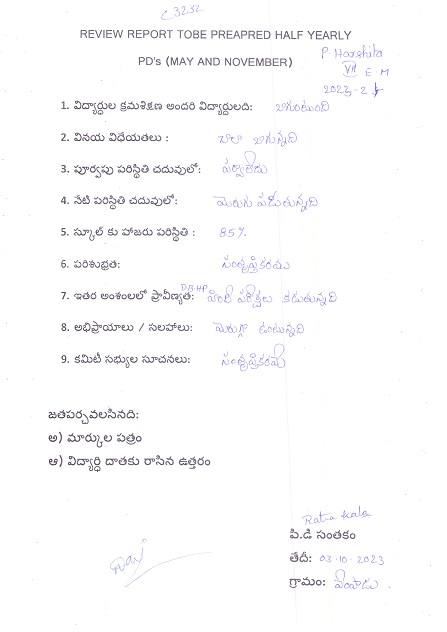 C3232
REVIEW REPORT TOBE PREAPRED HALF YEARLY
PD's (MAY AND NOVEMBER)
P. Harshita
VII E.M
2023-24
1. విద్యార్ధుల క్రమశిక్షణ అందరి విద్యార్దులది: బాగుంటుంది
2. వినయ విధేయతలు : చాలా బాగున్నది
3. పూర్వపు పరిస్థితి చదువులో: పర్వాలేదు
4. నేటి పరిస్థితి చదువులో: మెరుగు పడుతున్నది
5. స్కూల్ కు హాజరు పరిస్థితి : 85%
6. పరిశుభ్రత: సంతృప్తికరము
7. ఇతర అంశంలలో ప్రావీణ్యత: DBHP హిందీ పరీక్షలు కడుతున్నది
8. అభిప్రాయాలు / సలహాలు: మెరుగ్గా ఉంటున్నది
9. కమిటీ సభ్యుల సూచనలు: సంతృప్తికరమే
జతపర్చవలసినది:
అ) మార్కుల పత్రం
ఆ) విద్యార్ధి దాతకు రాసిన ఉత్తరం
Ratna Kala
పి.డి సంతకం
తేదీ: 03-10-2023
గ్రామం: వెంపాడు.